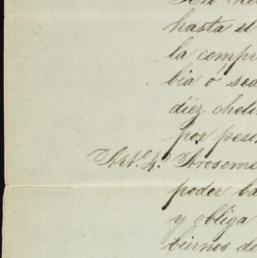 hasta el
la compr
bia ó sea
diez cheli
por peso
Art. 4. Aroseme
poder ba
y obliga
biernos de